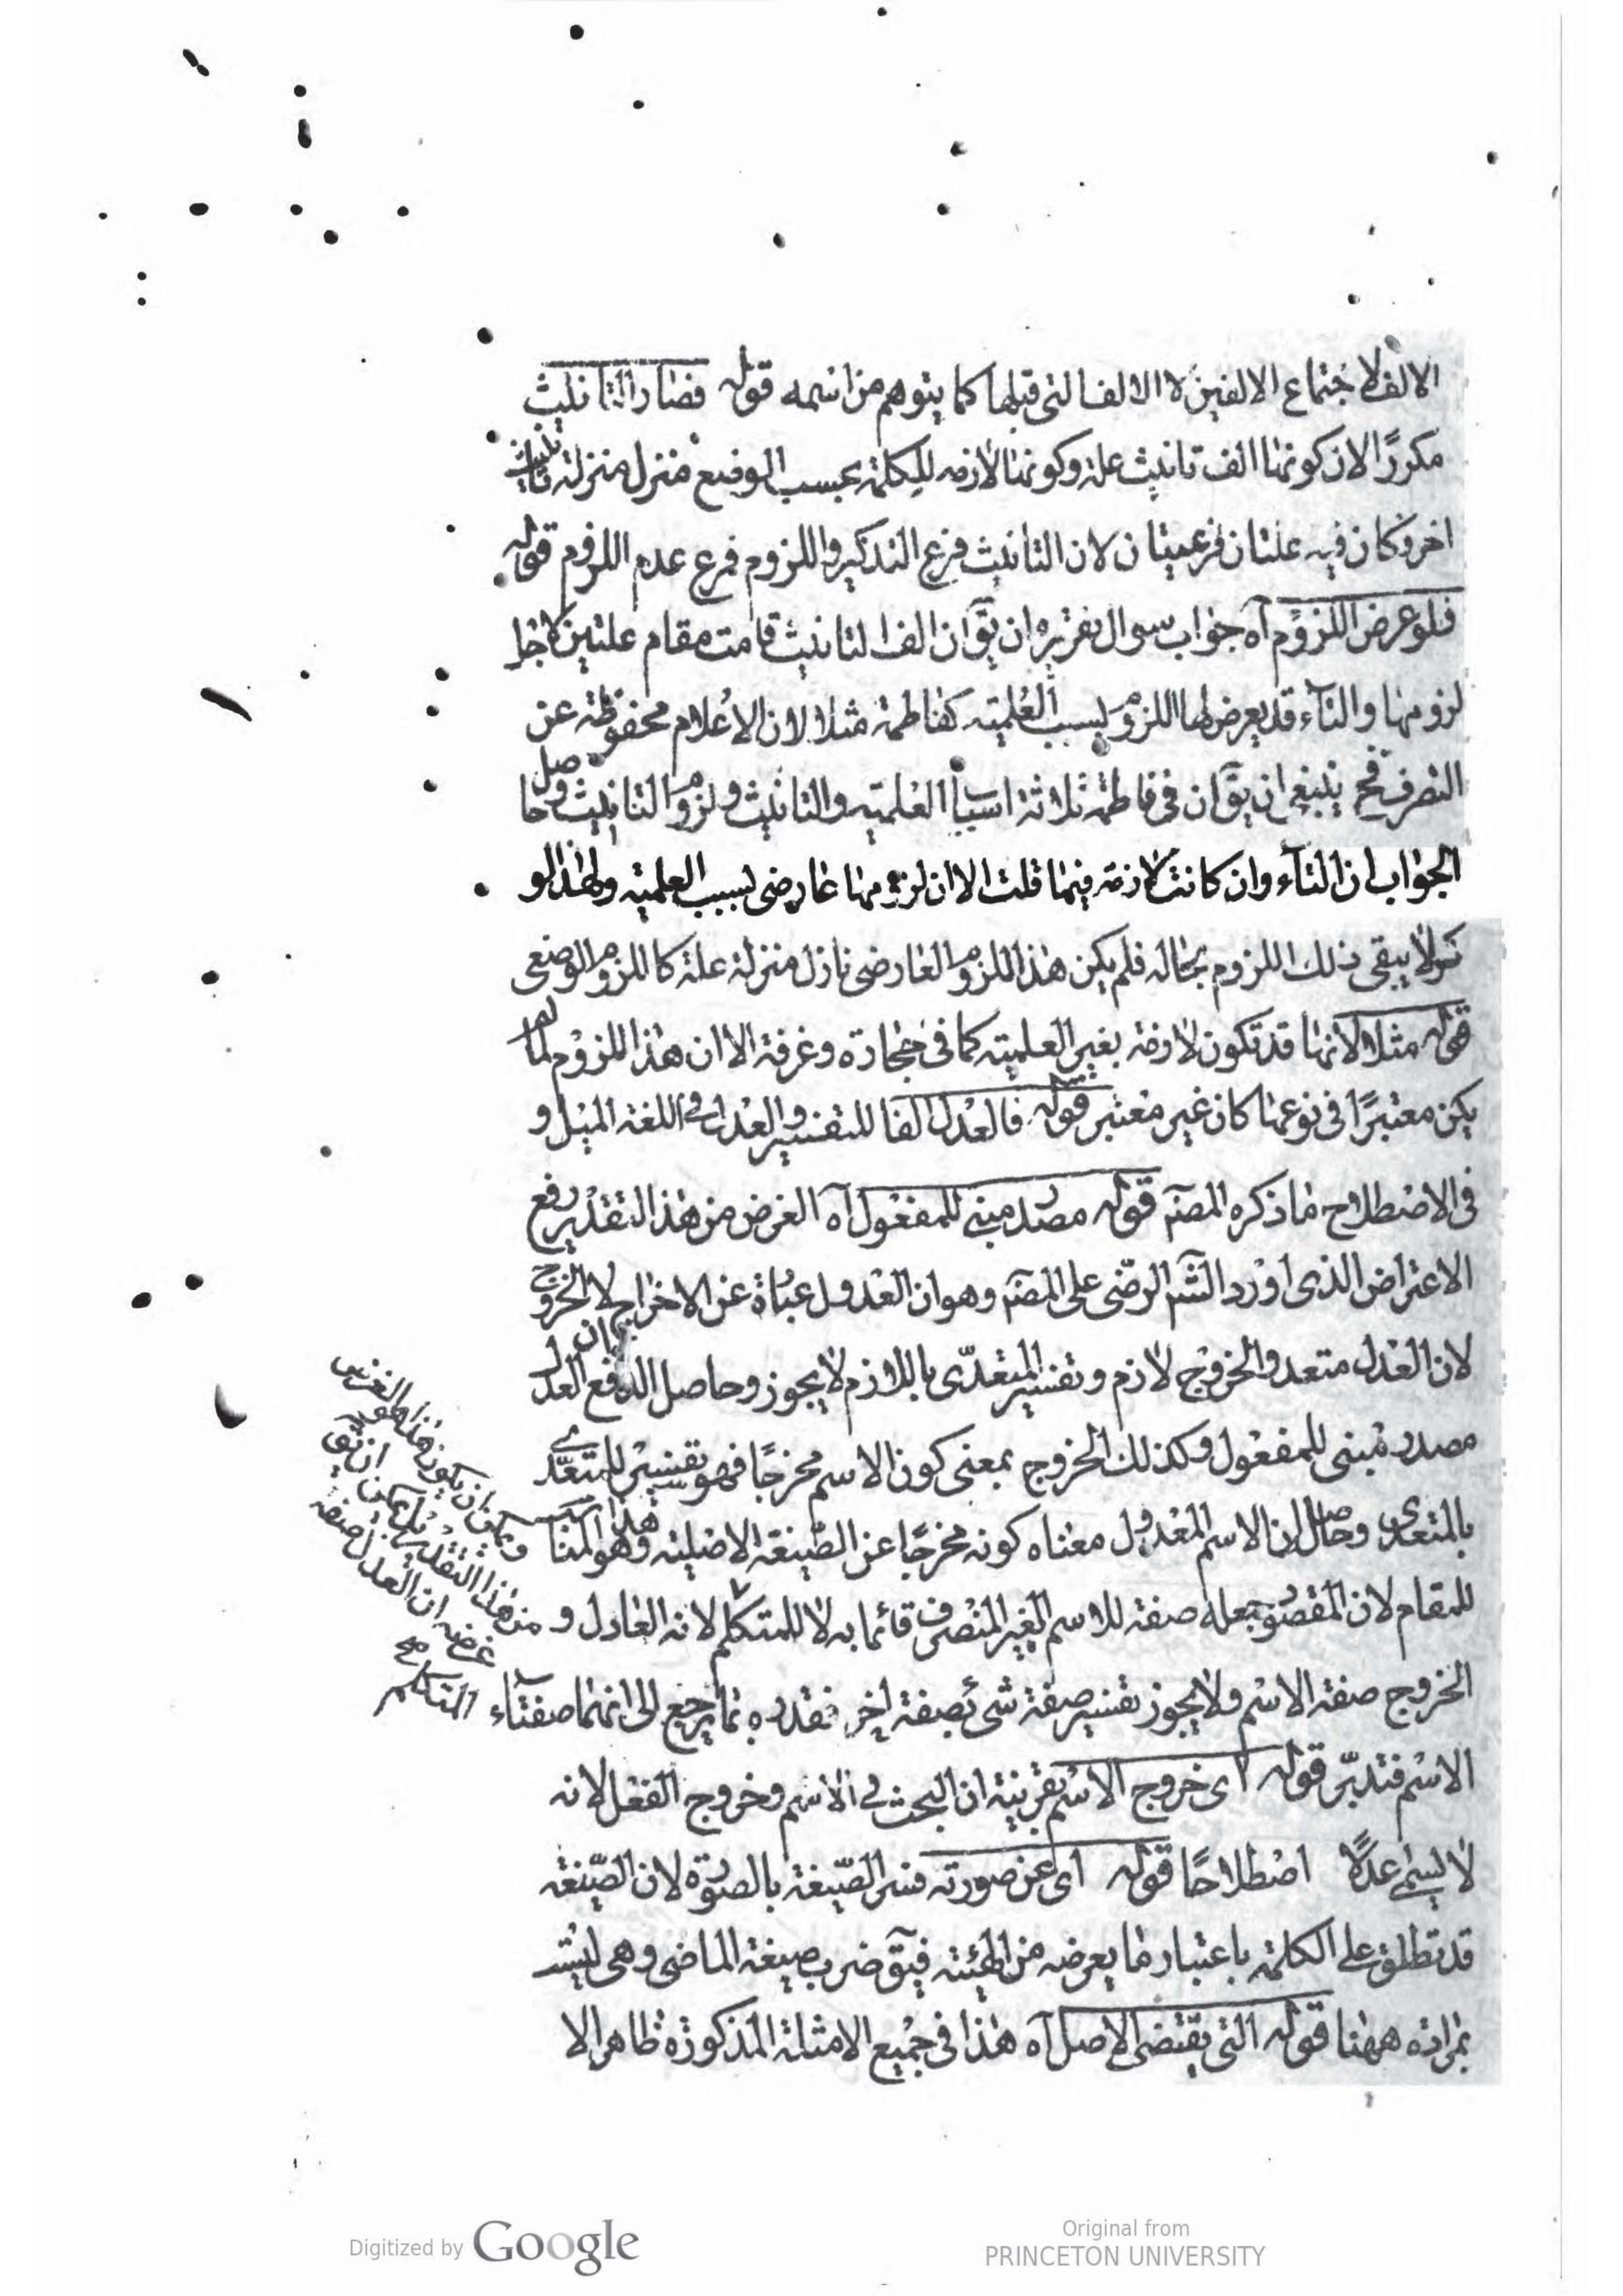 الالف لاجتماع الالفين لا الالف التى قبلها كما يتوهم من اسمه قوله فصار التانيث
مكررًا الان كونها الف تانيث علة وكونها لازمه للكلمة بحسب الوضع منزل منزلة تانيث
اخر فكان فيه علتان فرعيتان لان التانيث فرع التذكير واللزوم فرع عدم اللزوم قوله
فلو عرض اللزوم آه جواب سوال تقريره ان يقٓ ان الف التانيث قامت مقام علتين لاجل
لزومها والتآء قد يعرض لها اللزوم بسبب العلميته كفاطمة مثلا لان الاعلام محفوظة عن
التصرف فح ينبغى ان يقٓ ان فى فاطمة ثلاثة اسباب العلميته والتانيث ولزوم التانيث وحاصل
الجواب ان التآء وان كانت لازمة فيما قلت الا ان لزومها عارضى بسبب العلميته ولهذا لو
نكر لا يبقى ذلك اللزوم بحاله فلم يكن هذا اللزوم العارضى نازل منزلة علة كاللزوم الوضعى
قوله مثلا لانها قد تكون لازمة بغير العلميته كما فى حجارة وغرفة الا ان هذا اللزوم لما لم
يكن معتبرًا فى نوعها كان غير معتبر قوله فالعدل الفا للتفسير والعدل فى اللغة الميل و
فى الاصطلاح ما ذكره المصٓ قوله مصدر مبنى للمفعول آه الغرض من هذا التقدير رفع
الاعتراض الذى اورد الشٓ الرضى على المصٓ وهو ان العدول عبارة عن الاخراج لا الخروج
لان العدل متعد والخروج لازم وتفسير المتعدّى باللازم لا يجوز وحاصل الدفع ان العدل
مصدر مبنى للمفعول وكذلك الخروج بمعنى كون الاسم مخرجًا فهو تفسير للمتعدّى
بالمتعدى وحاصل ان الاسم المعدول معناه كونه مخرجًا عن الصّيغة الاصلية وهو المناسب
للمقام لان المقصود جعله صفة للاسم الغير المنصرف قائما به لا للمتكلم لانه العادل و
الخروج صفة الاسم ولا يجوز تفسير صفة شىء بصفة اخر فقدره بما يرجع الى انهما صفتآء
الاسم فتدبّر قوله اى خروج الاسم بقرينة ان البحث فى الاسم وخروج الفعل لانه
لا يسمى عدلًا اصطلاحًا قوله اى عن صورته فسر الصّيغة بالصورة لان الصّيغة
قد تطلق على الكلمة باعتبار ما يعرضه من الهيئته فيقٓ ضرب صيغة الماضى وهى ليست
بمرادة ههنا قوله التى يقتضى الاصل آه هذا فى جميع الامثلة المذكورة ظاهر الا
ويمكن ان يكون هذا الغرض
من هذا التقدير بل يمكن ان يقٓ
غرضه ان العدل صفة
المتكلم مح
Digitized by Google
Original from
PRINCETON UNIVERSITY